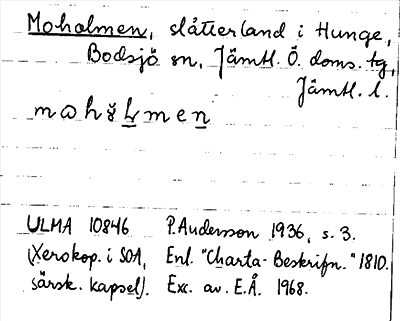 Moholmen, slåtterland i Hunge,
Bodsjö sn, Jämtl. Ö. doms. tg,
Jämtl. l.
ULMA 10846 P. Andersson 1936, s. 3.
(Xerokop. i SOA, Enl. "Charta-Beskrifn." 1810.
särsk. kapsel). Exc. av. E.Å. 1968.